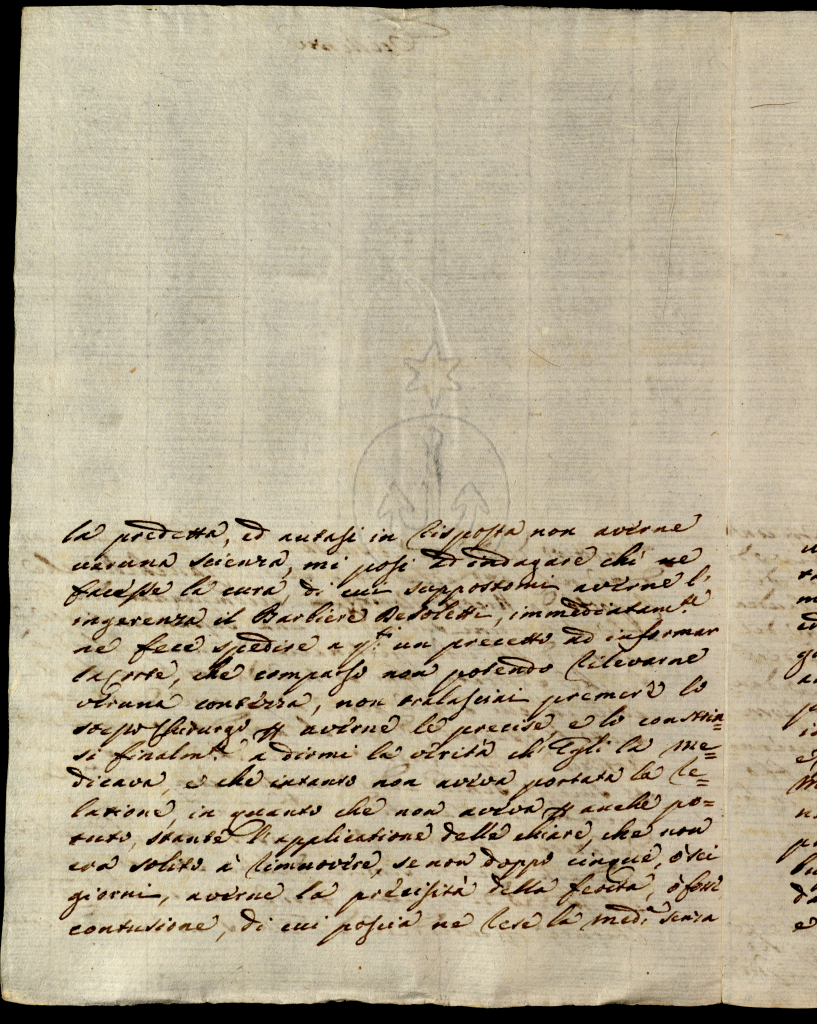 la predetta, ed autasi in risposta non averne
veruna scienza, mi posi ad indagare chi ne
facesse la cura, di cui suppostomi averne l'
ingerenza il Barbiere Desoletti, immediatam.te
ne fece spedire a q.ti un precetto ad informar
la Corte, che comparso non potendo rilevarne
veruna contezza, non tralasciai premere lo
stesso Chirurgo p averne le precise, e lo constrin=
si finalm.te a dirmi la verità ch'Egli la me=
dicava, e che intanto non aveva portata la re=
latione, in quanto che non aveva p anche po=
tuto, stante l'applicatione delle chiare, che non
era solito à rimuovere, se non doppo cinque, ò sei
giorni, averne la precisità della ferita, ò fosse
contusione, di cui poscia ne rese la med.a senza